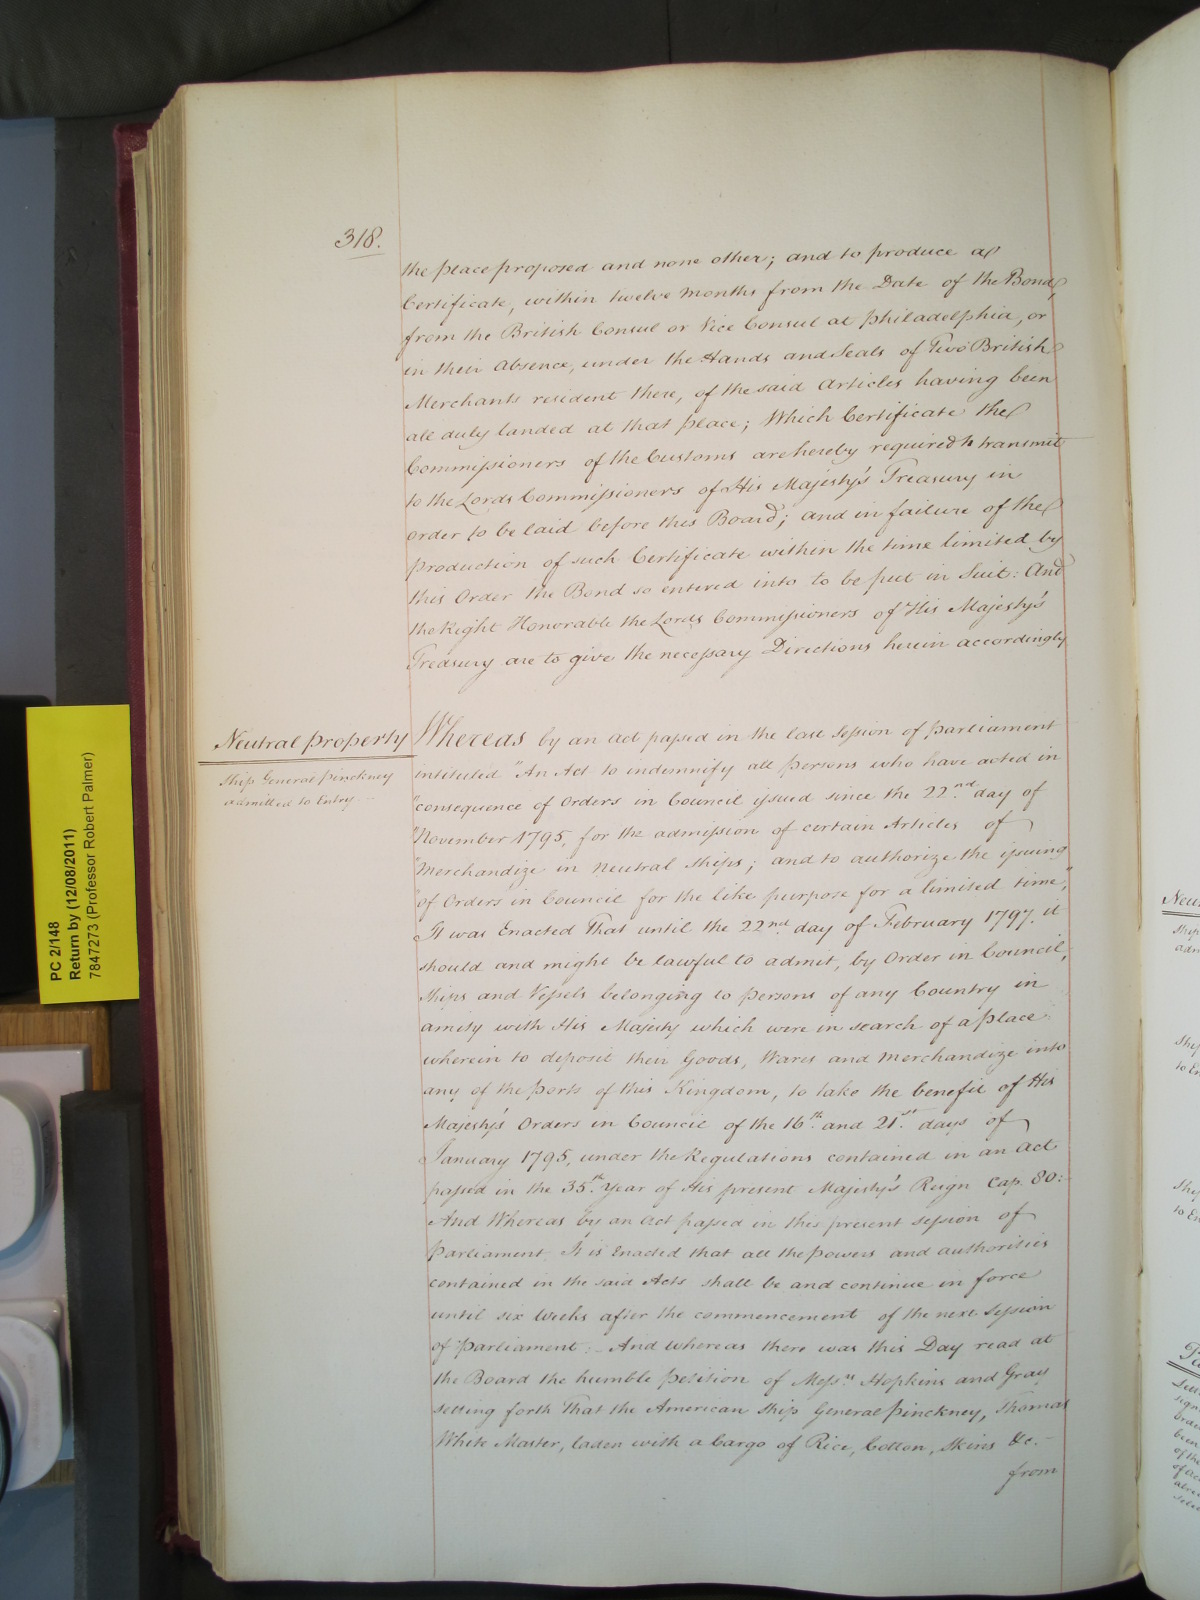 318.
the place proposed and none other; and to produce a
Certificate, within twelve Months from the Date of the Bond,
from the British Consul or Vice Consul at Philadelphia, or
in their absence, under the Hands and Seals of Two British
Merchants resident there, of the said Articles having been
all duly landed at that place; Which Certificate the
Commissioners of the Customs are hereby required to transmit
to the Lords Commissioners of His Majesty's Treasury in
order to be laid before this Board; and in failure of the
production of such Certificate within the time limited by
this Order the Bond so entered into to be put in Suit: And
the Right Honorable the Lords Commissioners of His Majesty's
Treasury are to give the necessary Directions herein accordingly
Neutral property
Ship General Pinckney
admitted to Entry. —
Whereas by an act passed in the last Session of Parliament
intituled "An Act to indemnify all persons who have acted in
"consequence of Orders in Council issued since the 22.nd day of
"November 1795, for the admission of certain Articles of
"Merchandize in Neutral Ships; and to authorize the issuing
"of Orders in Council for the like purpose for a limited time;"
It was Enacted That until the 22nd day of February 1797. it
should and might be lawful to admit, by Order in Council,
Ships and Vessels belonging to persons of any Country in
amity with His Majesty which were in search of a place
wherein to deposit their Goods, Wares and Merchandize into
any of the Ports of this Kingdom, to take the benefit of His
Majesty's Orders in Council of the 16th. and 21st. days of
January 1795, under the Regulations contained in an Act
passed in the 35th. Year of His present Majesty's Reign Cap. 80:
And Whereas by an Act passed in this present session of
Parliament It is Enacted that all the powers and authorities
contained in the said Acts shall be and continue in force
until six Weeks after the commencement of the next Session
of Parliament:– And whereas there was this Day read at
the Board the humble petition of Messrs. Hopkins and Gray
setting forth That the American Ship General Pinckney, Thomas
White Master, laden with a Cargo of Rice, Cotton, Skins &c. –
from
PC 2/148
Return by (12/08/2011)
7847273 (Professor Robert Palmer)